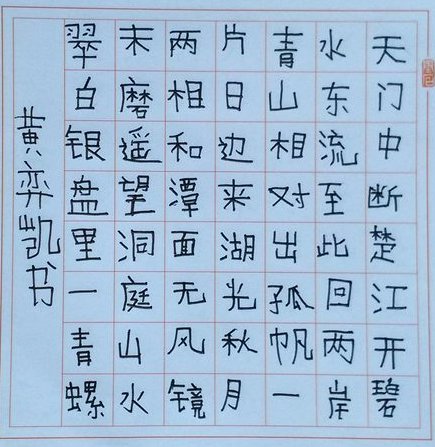 天门中断楚江开碧
水东流至此回两岸
青山相对出孤帆一
片日边来湖光秋月
两相和潭面无风镜
未磨遥望洞庭山水
翠白银盘里一青螺
黄弈凯书